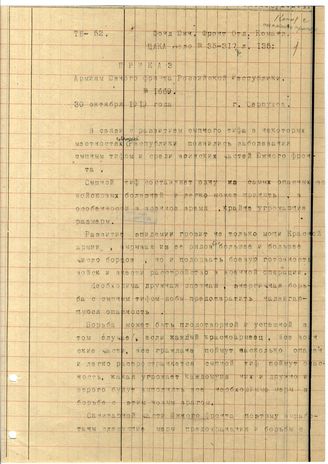 ТБ - 52. Фонд Южн. Фронт Отд. Команд.
ЦАКА дело № 35-317 л. 135:
ПРИКАЗ
Армиям Южного фронта Российской Республики.
№ 1669.
30 октября 1919 года г. Серпухов.
В связи с развитием сыпного тифа в некоторых
местностях Республики появились заболевания
сыпным тифом и среди воинских частей Южного фрон-
та.
Сыпной тиф составляет одну из самых опасных
войсковых болезней и легко может принять
особенности в военное время, крайне угрожающие
размеры.
Развитие эпидемии грозит не только мощи Красной
армии, вырывая из ее рядов больше и больше
бойцов, но и подорвать боевую готовность
войск и внести расстройство в военной операции.
Необходима дружная спешная, энергичная борь-
ба с сыпным тифом дабы предотвратить надвигаю-
щуюся опасность.
Борьба может быть плодотворной и успешной в
том случае, если каждый красноармеец, все воин-
ские части, все граждане поймут насколько опасен
и легко распространяется сыпной тиф поймут опас-
ность, какая угрожает каждому из них и дружно и
скоро будут выполнять все необходимые меры в
борьбе с этим новым врагом.
Санитарной части Южного Фронта поэтому вырабо-
тали следующие меры предохранения и борьбы с